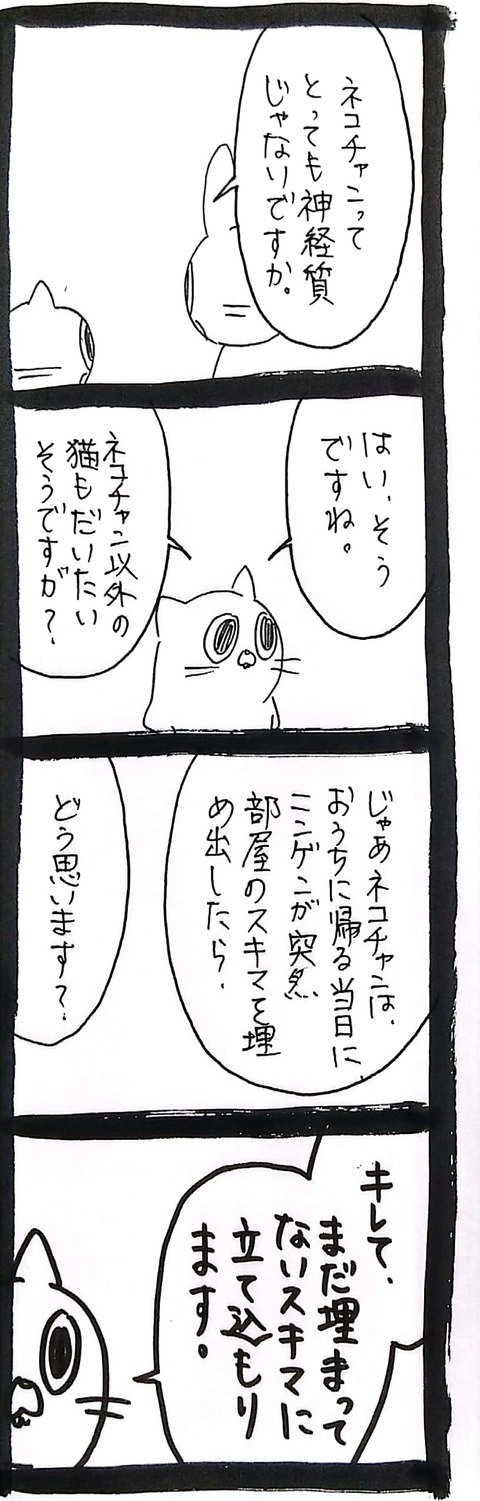 ネコチャンって
とっても神経質
じゃないですか。
はい、そう
ですね。
ネコチャン以外の
猫もだいたい
そうですが？
じゃあネコチャンは、
おうちに帰る当日に、
ニンゲンが突然
部屋のスキマを埋
め出したら、
どう思います？
キレて、
まだ埋まって
ないスキマに
立て込もり
ます。